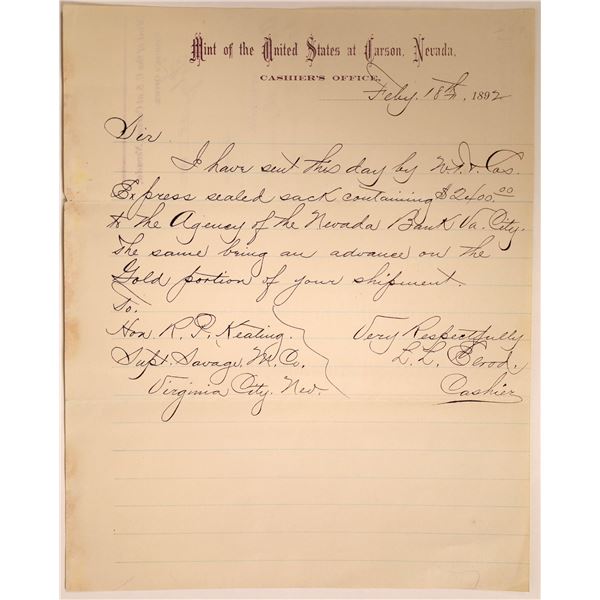 Mint of the United States at Carson, Nevada.
CASHIER'S OFFICE,
Feby. 18th, 1892
Sir
I have sent this day by W. F. & Cos.
Express sealed sack containing $2400.00
to the Agency of the Nevada Bank Va. City.
The same being an advance on the
Gold portion of your shipment.
To.
Hon. R. P. Keating.
Supt. Savage, M. Co.
Virginia City, Nev.
Very Respectfully
L. L. Elrod,
Cashier